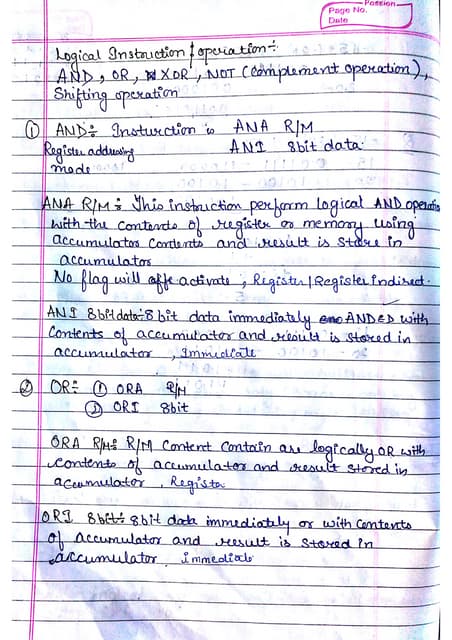 Passion
Page No.
Date
Logical Instruction / operation:-
AND, OR, XOR, NOT (Complement operation),
Shifting operation
① AND:- Insturction is ANA R/M
Register addressing ANI 8bit data
mode
ANA R/M:- This instruction perform logical AND operatio
with the contents of register or memory using
accumulator contents and result is store in
accumulator
No flag will activate, Register/Register indirect.
ANI 8bit data:- 8bit data immediately ANDED with
Contents of accumulator and result is stored in
accumulator, Immediate
② OR:- ① ORA R/M
② ORI 8bit
ORA R/M:- R/M Content contain are logically OR with
contents of accumulator and result stored in
accumulator, Register
ORI 8bit:- 8bit data immediately or with contents
of accumulator and result is stored in
accumulator. immediate